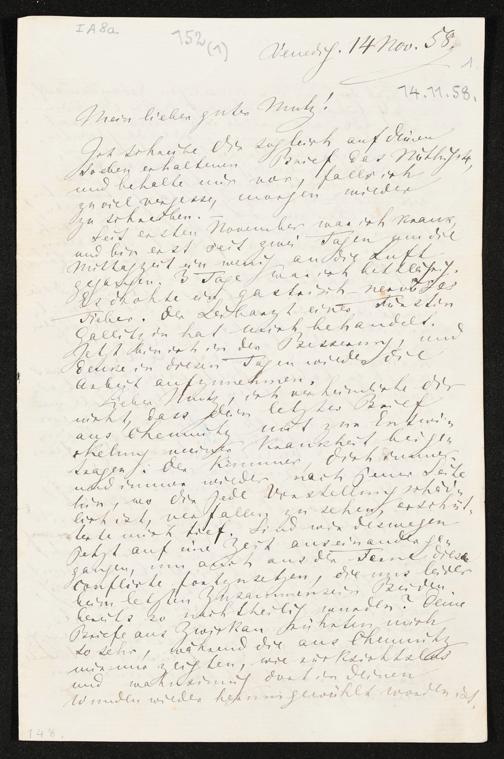 I A 8a
152 (1)
Venedig. 14 Nov. 58.
1
14.11.58.
Mein lieber guter Mutz!
Ich schreibe Dir sogleich auf deinen
soeben erhaltenen Brief das Nöthigste,
und behalte mir vor, falls ich
zuviel vergesse, morgen wieder
zu schreiben.
Seit ersten November war ich krank,
und bin erst seit zwei Tagen um die
Mittagszeit ein wenig an die Luft
gegangen. 3 Tage war ich bettlägrig.
Es
gastrisch nervöses
Fieber. Der Leibarzt eines Fürsten
Gallitzin hat mich behandelt.
Jetzt bin ich in der Besserung, und
denke in diesen Tagen wieder die
Arbeit aufzunehmen.
Lieber Mutz, ich verheimlichte Dir
nicht, dass Dein letzter Brief
aus Chemnitz mit zur Entwi
ckelung meiner Krankheit beige
tragen. Der Kummer, Dich immer
und immer wieder nach jener Seite
hin, wo Dir jede Vorstellung
ist, verfallen zu sehen, erschüt-
terte mich tief. Sind wir deswegen
jetzt auf eine Zeit auseinanderge
gangen, um auch aus der Ferne diese
Conflicte fortzusetzen, die uns leider
beim letzten Zusammensein Beiden
bereits so nachtheilig wurden? Deine
Briefe aus Zwickau rührten mich
so sehr, während die aus Chemnitz
mir nur zeigten, wie rücksichtslos
und wahnsinnig dort in deinen
Wunden wieder herumgewühlt worden ist.
148.